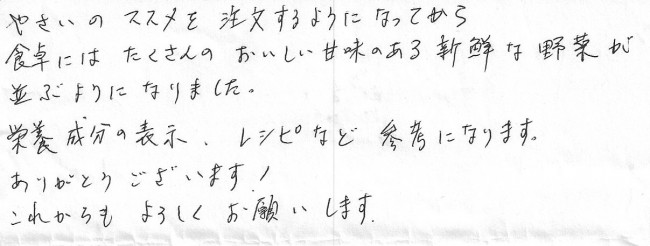 やさいのススメを注文するようになってから
食卓にはたくさんのおいしい甘味のある新鮮な野菜が
並ぶようになりました。
栄養成分の表示、レシピなど参考になります。
ありがとうございます!
これからもよろしくお願いします.